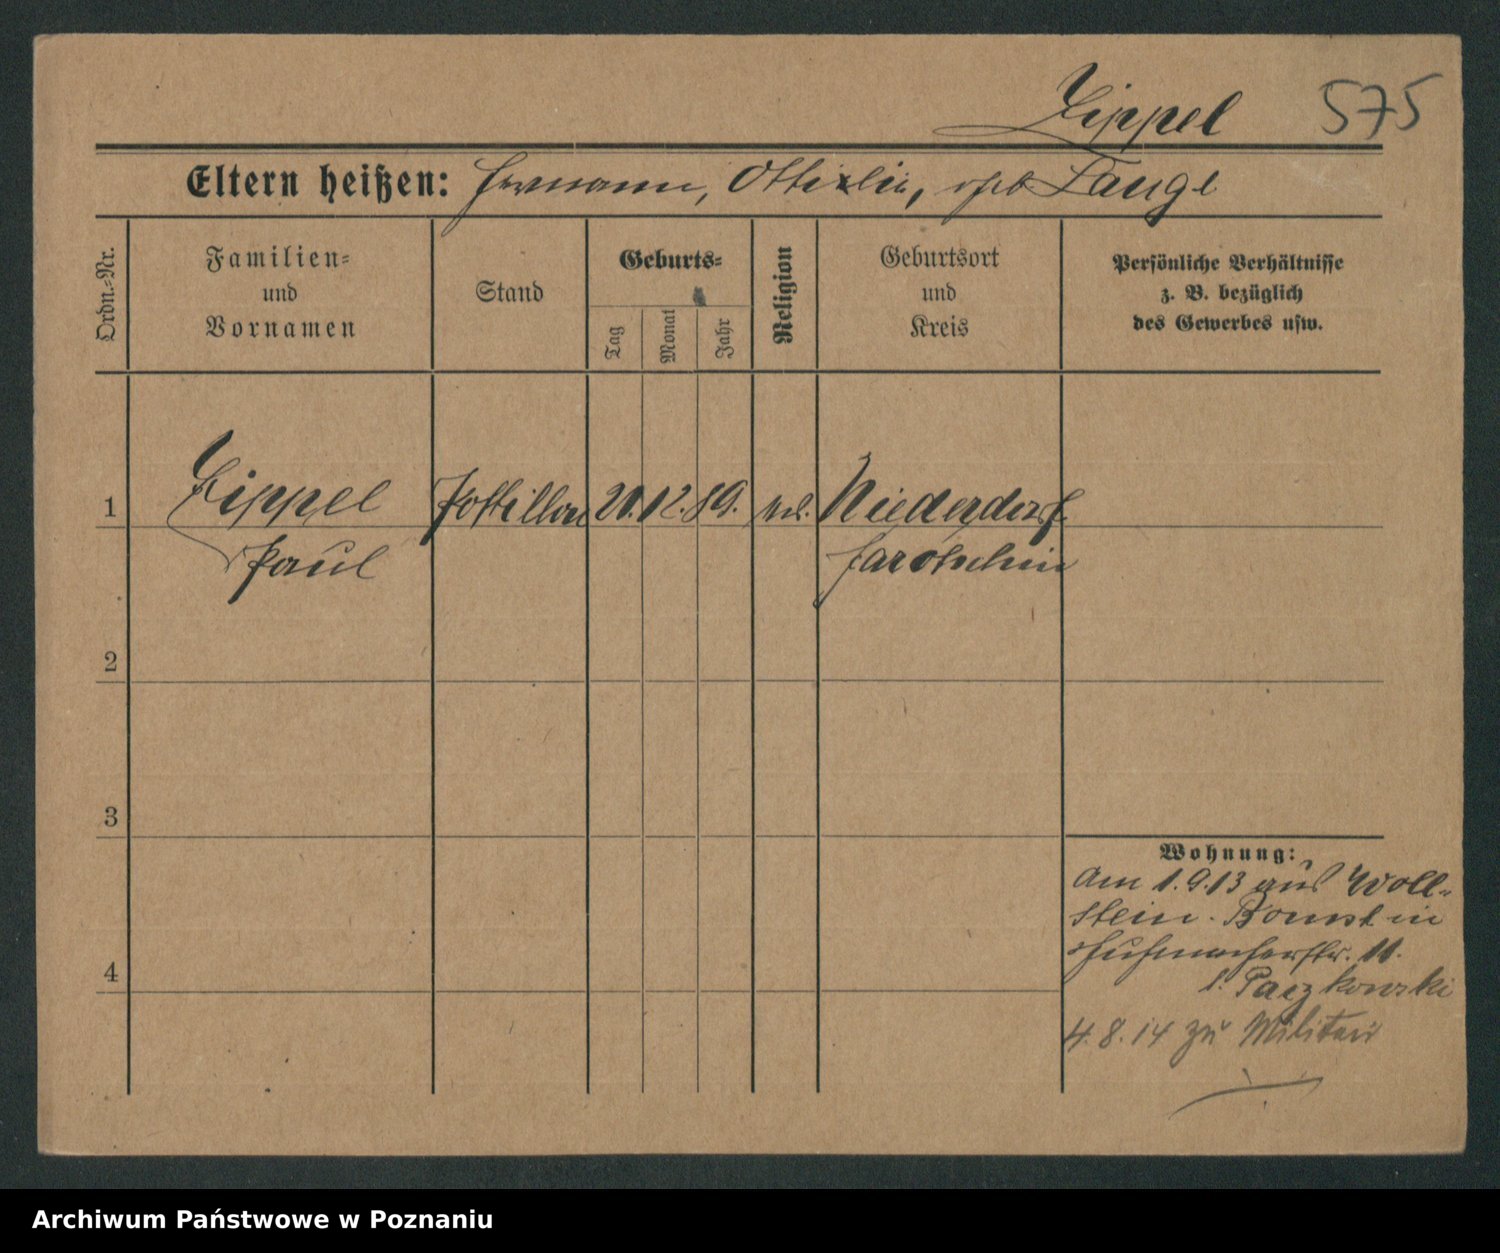 Zippel 575
Eltern heißen: Hermann, Ottilie, geb Lange
Ordn.=Nr.
Familien=
und
Vornamen
Stand
Geburts=
Tag
Monat
Jahr
Religion
Geburtsort
und
Kreis
Persönliche Verhältnisse
z. B. bezüglich
des Gewerbes usw.
1 Zippel Postillon 12. 89. Niederdorf
Paul Jarotschin
2
3
4
Wohnung:
Am 1.9.13 aus Woll-
stein - Bomst in
11.
b. Paczkowski
4.8.14 zu Militär
Archiwum Państwowe w Poznaniu